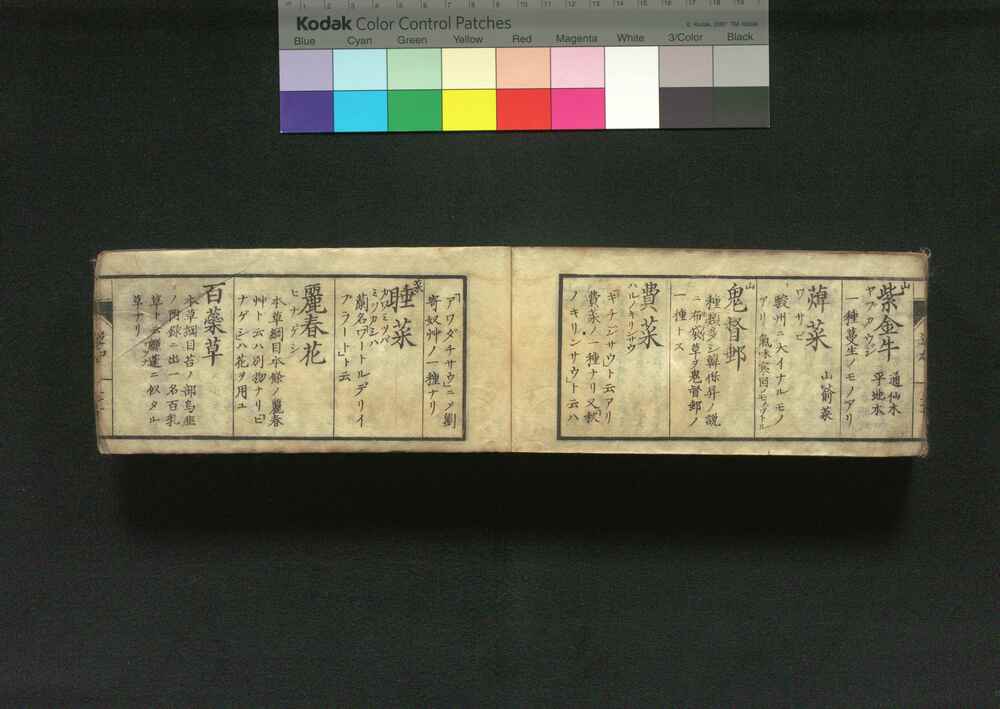 Kodak Color Control Patches
© Kodak, 2007 TM: Kodak
Blue Cyan Green Yellow Red Magenta White 3/Color Black
山
紫金牛
通仙木
平地木
一種蔓生ノモノアリ
蔊菜
ワサビ
山萮菜
駿州ニ大イナルモノ
山
鬼督郵
種類多シ韓保昇ノ説
一種トス
費菜
ハルノキリンサウ
キチンジサウト云アリ
費菜ノ一種ナリ又秋
ノキリンサウト云ハ
アワダチサウニメ劉
寄奴艸ノ一種ナリ
睡菜
ミツガシハ
蘭名ヴートルデリイ
フラートト云
麗春花
ヒナゲシ
本草綱目本條ノ麗春
艸ト云ハ別物ナリヒ
ナゲシハ花ヲ用ユ
百蘂草
本草綱目苔ノ部烏韭
ノ附録ニ出一名百乳
草ト云
草ナリ